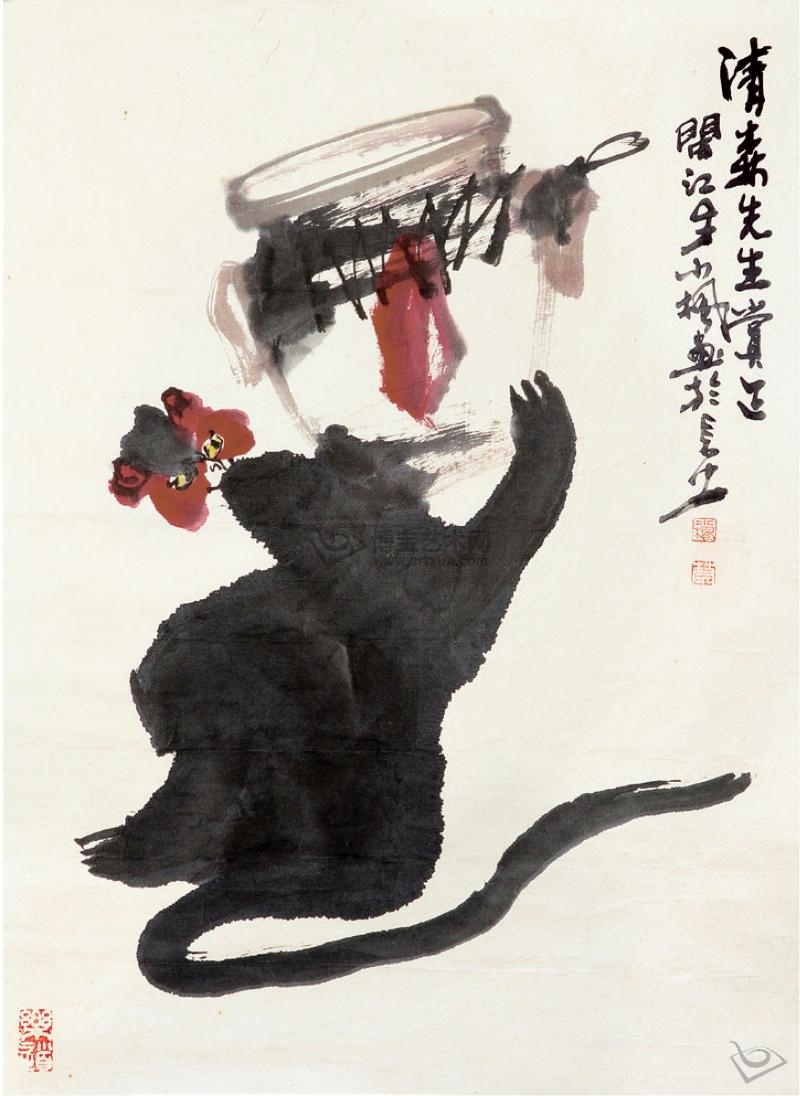 清森先生赏正
闇江李小枫画於长沙
博宝艺术网
www.artxun.com